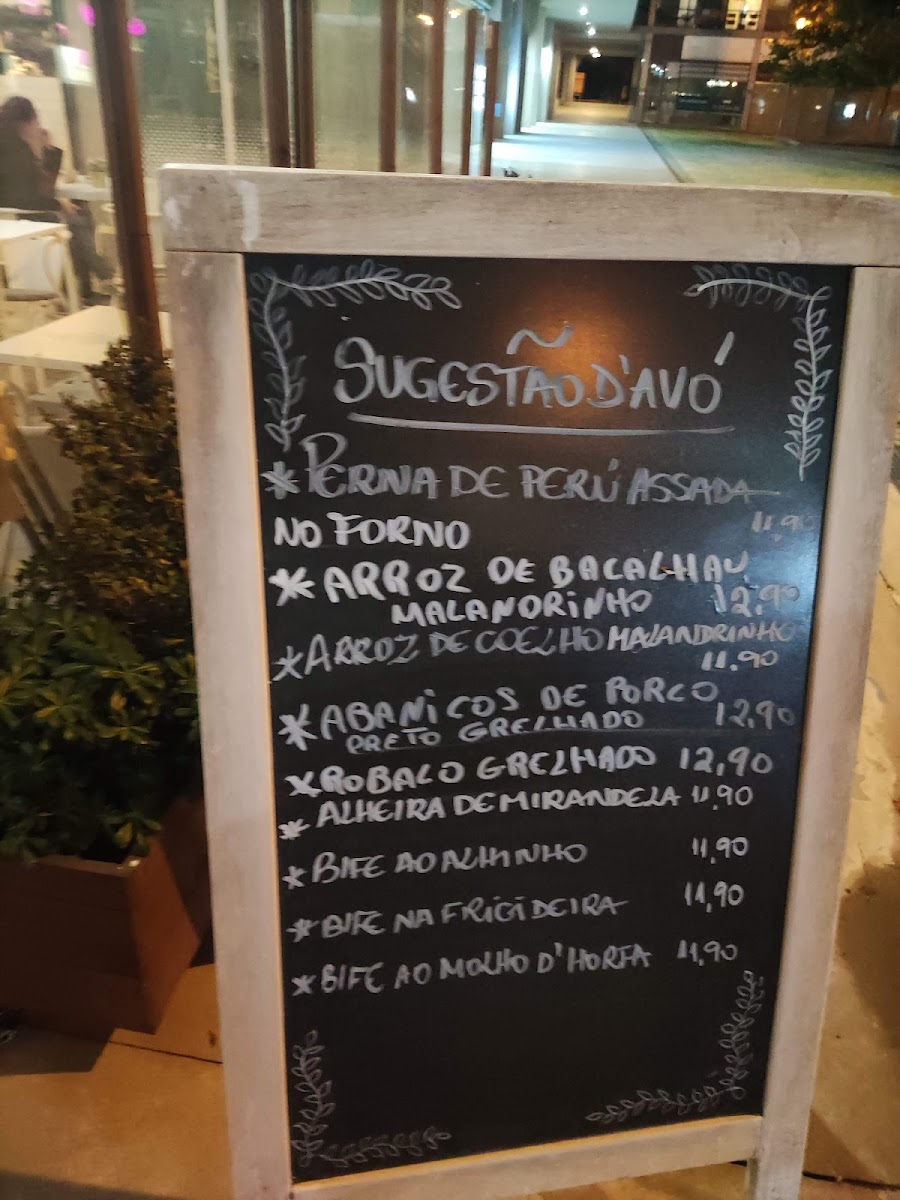 SUGESTÃO D'AVÓ
* PERNA DE PERÚ ASSADA
NO FORNO 11,90
* ARROZ DE BACALHAU
MALANDRINHO 12,90
* ARROZ DE COELHO MALANDRINHO
11.90
* ABANICOS DE PORCO
PRETO GRELHADO 12,90
* ROBALO GRELHADO 12,90
* ALHEIRA DE MIRANDELA 11,90
* BIFE AO ALHINHO 11,90
* BIFE NA FRIGIDEIRA 11,90
* BIFE AO MOLHO D'HORTA 11,90